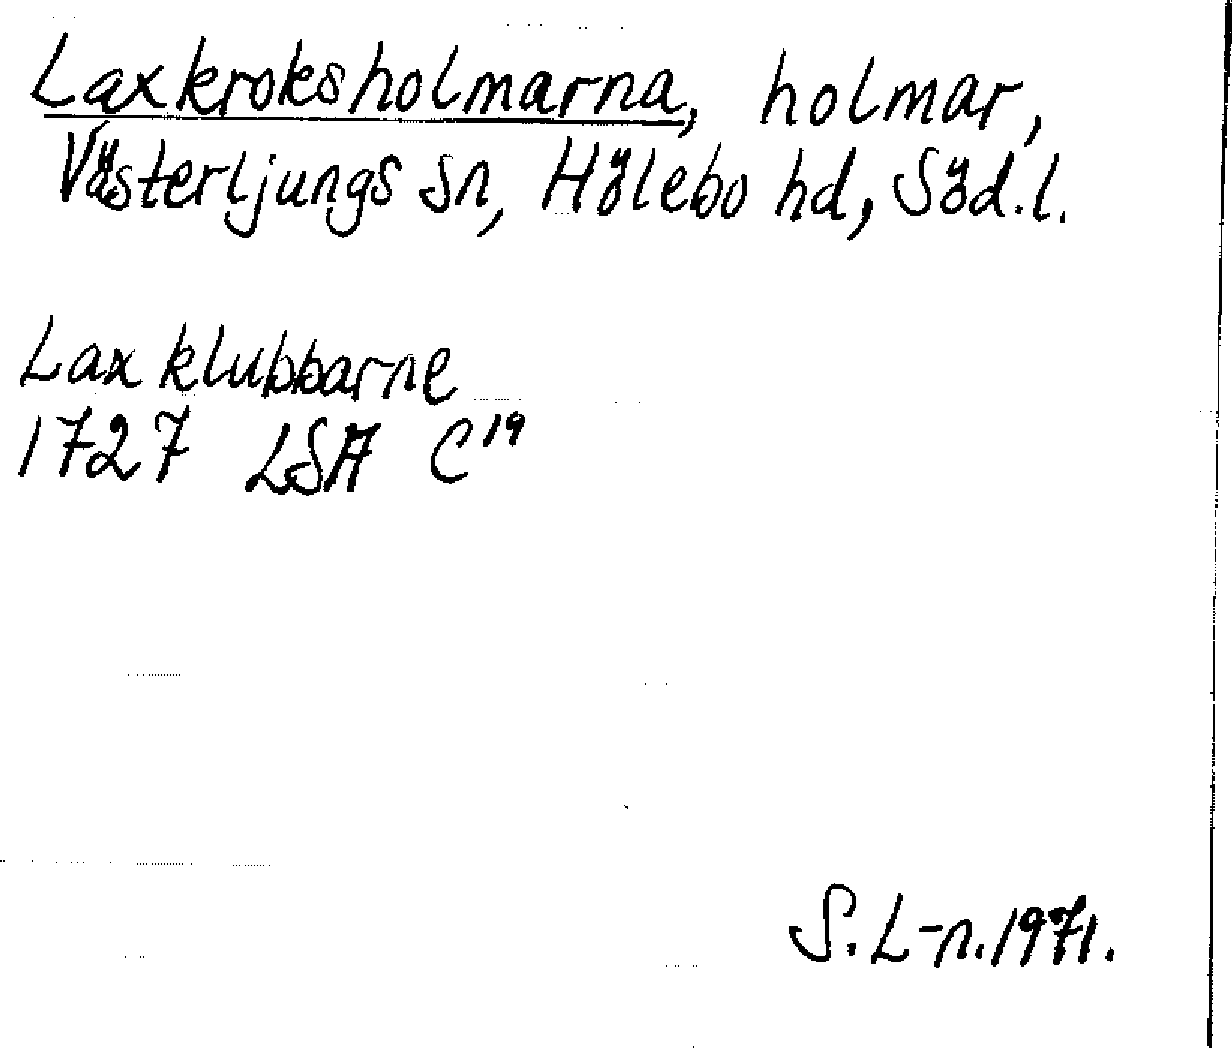 Laxkroksholmarna, holmar,
Västerljungs sn, Hölebo hd, Söd.l.
Lax klubbarne
1727 LSA C¹⁹
S. L-n. 1971.